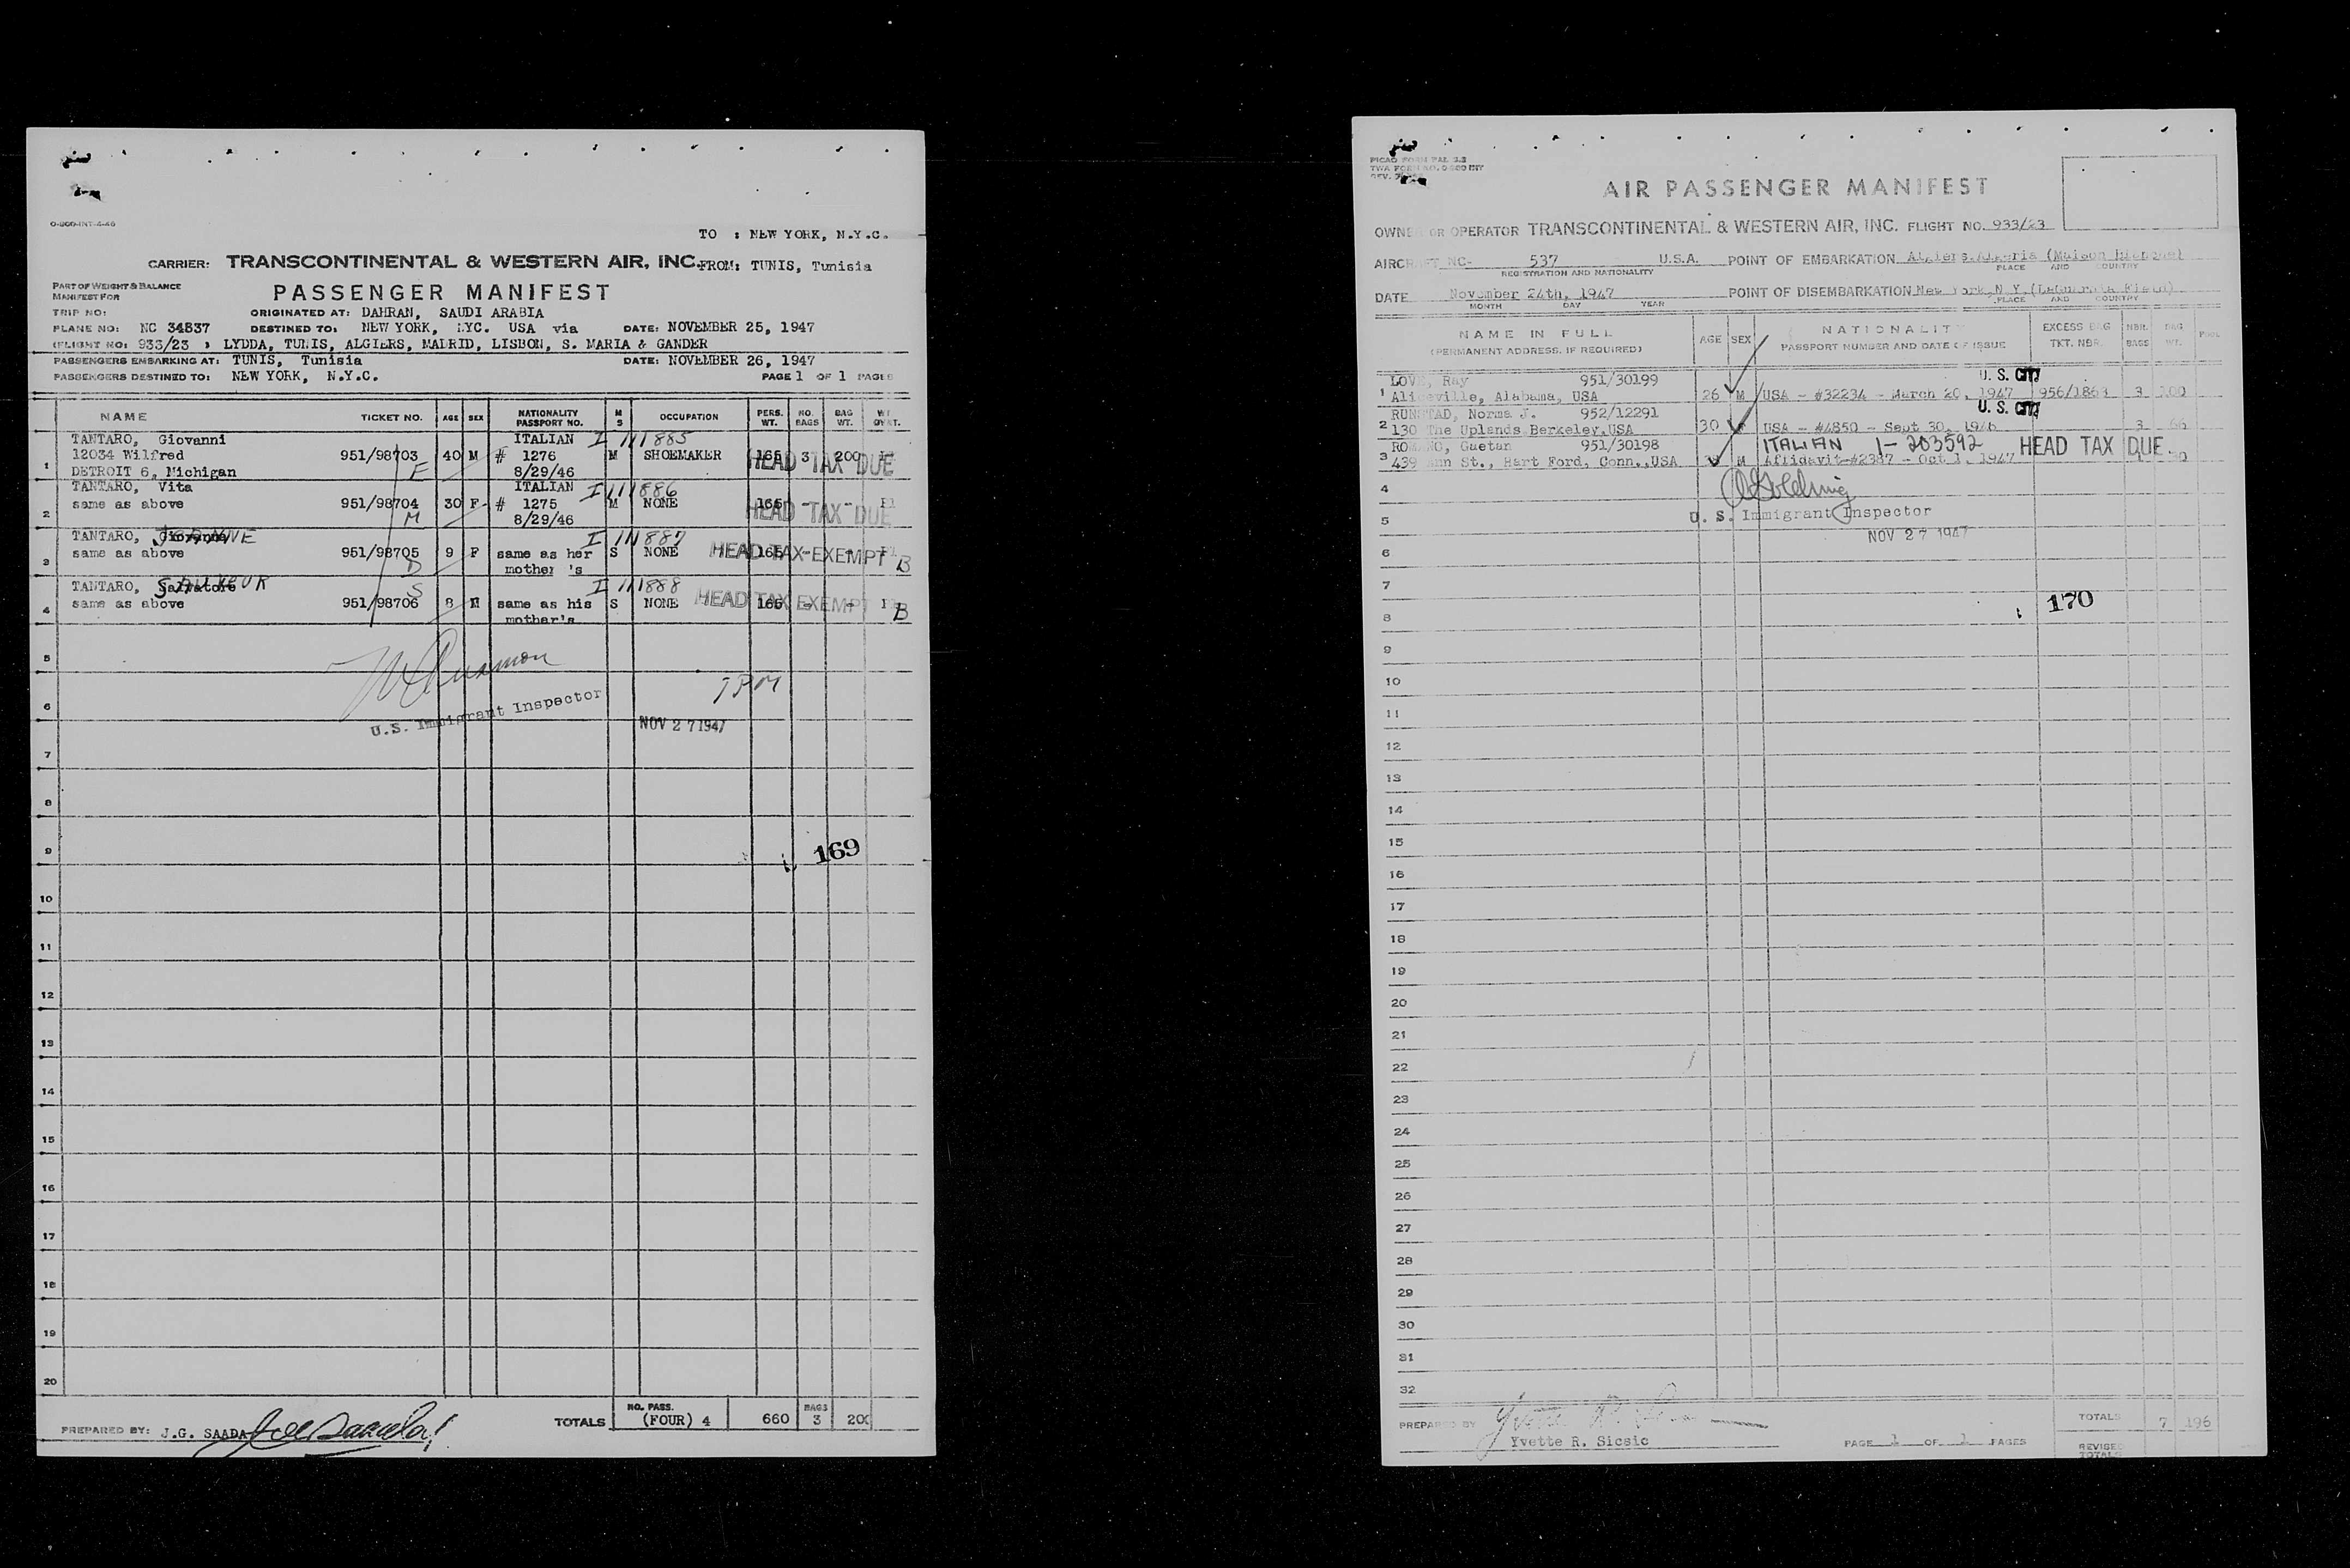 O-800-INT-4-46
TO : NEW YORK, N.Y.C.
CARRIER: TRANSCONTINENTAL & WESTERN AIR, INC. FROM: TUNIS, Tunisia
PART OF WEIGHT & BALANCE
MANIFEST FOR
PASSENGER MANIFEST
TRIP NO: ORIGINATED AT: DAHRAN, SAUDI ARABIA
PLANE NO: NC 34837 DESTINED TO: NEW YORK, NYC. USA via DATE: NOVEMBER 25, 1947
(FLIGHT NO: 933/23 ) LYDDA, TUNIS, ALGIERS, MADRID, LISBON, S. MARIA & GANDER
PASSENGERS EMBARKING AT: TUNIS, Tunisia DATE: NOVEMBER 26, 1947
PASSENGERS DESTINED TO: NEW YORK, N.Y.C. PAGE 1 OF 1 PAGES
NAME TICKET NO. AGE SEX NATIONALITY PASSPORT NO. M S OCCUPATION PERS. WT. NO. BAGS BAG WT.
TANTARO, Giovanni ITALIAN I 111885
12034 Wilfred 951/98703 40 M # 1276 M SHOEMAKER 165 3 200
1 DETROIT 6, Michigan F 8/29/46 HEAD TAX DUE
TANTARO, Vita ITALIAN I 111886
same as above 951/98704 30 F # 1275 M NONE 165 - -
2 M 8/29/46 HEAD TAX DUE
TANTARO, Giovanna I 111887
same as above 951/98705 9 F same as her S NONE 165 - -
3 D mother 's HEAD TAX EXEMPT B
TANTARO, Salvatore SAUVEUR S I 111888
same as above 951/98706 8 M same as his S NONE 165 - -
4 mother's HEAD TAX EXEMPT B
5
6 7PM
U.S. Immigrant Inspector NOV 27 1947
7
8
9 169
10
11
12
13
14
15
16
17
18
19
20
NO. PASS. BAGS
PREPARED BY: J.G. SAADA TOTALS (FOUR) 4 660 3 200
PICAO FORM PAL 3.3
AIR PASSENGER MANIFEST
OWNER OR OPERATOR TRANSCONTINENTAL & WESTERN AIR, INC. FLIGHT NO. 933/23
AIRCRAFT NC- 537 U.S.A. POINT OF EMBARKATION Algiers, Algeria (Maison Blanche)
REGISTRATION AND NATIONALITY PLACE AND COUNTRY
DATE November 24th, 1947 POINT OF DISEMBARKATION New York, N.Y. (LaGuardia Field)
MONTH DAY YEAR PLACE AND COUNTRY
NAME IN FULL AGE SEX NATIONALITY EXCESS BAG NBR. BAG
(PERMANENT ADDRESS, IF REQUIRED) PASSPORT NUMBER AND DATE OF ISSUE TKT. NBR. BAGS WT. POOL
LOVE, Ray 951/30199 U. S. CIT
1 Aliceville, Alabama, USA 26 M USA - #32234 - March 20, 1947 956/1863 3 100
RUNSTAD, Norma J. 952/12291 U. S. CIT
2 130 The Uplands Berkeley, USA 30 USA - #4850 - Sept 30, 1946 3 66
ROMANO, Gaetan 951/30198 ITALIAN 1-203592 HEAD TAX DUE.
3 439 Ann St., Hart Ford, Conn., USA M Affidavit-#2387 - Oct 1, 1947 1 30
4
5 U. S. Immigrant Inspector
NOV 27 1947
6
7
8 170
9
10
11
12
13
14
15
16
17
18
19
20
21
22
23
24
25
26
27
28
29
30
31
32
PREPARED BY TOTALS 7 196
Yvette R. Sicsic PAGE 1 OF 1 PAGES REVISED TOTALS